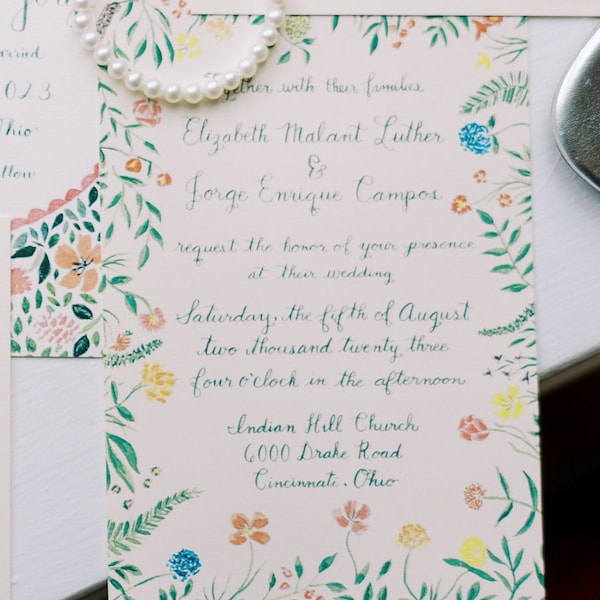 arried
2023
Ohio
ollow
together with their families
Elizabeth Malant Luther
&
Jorge Enrique Campos
request the honor of your presence
at their wedding
Saturday, the fifth of August
two thousand twenty three
four o'clock in the afternoon
Indian Hill Church
6000 Drake Road
Cincinnati, Ohio